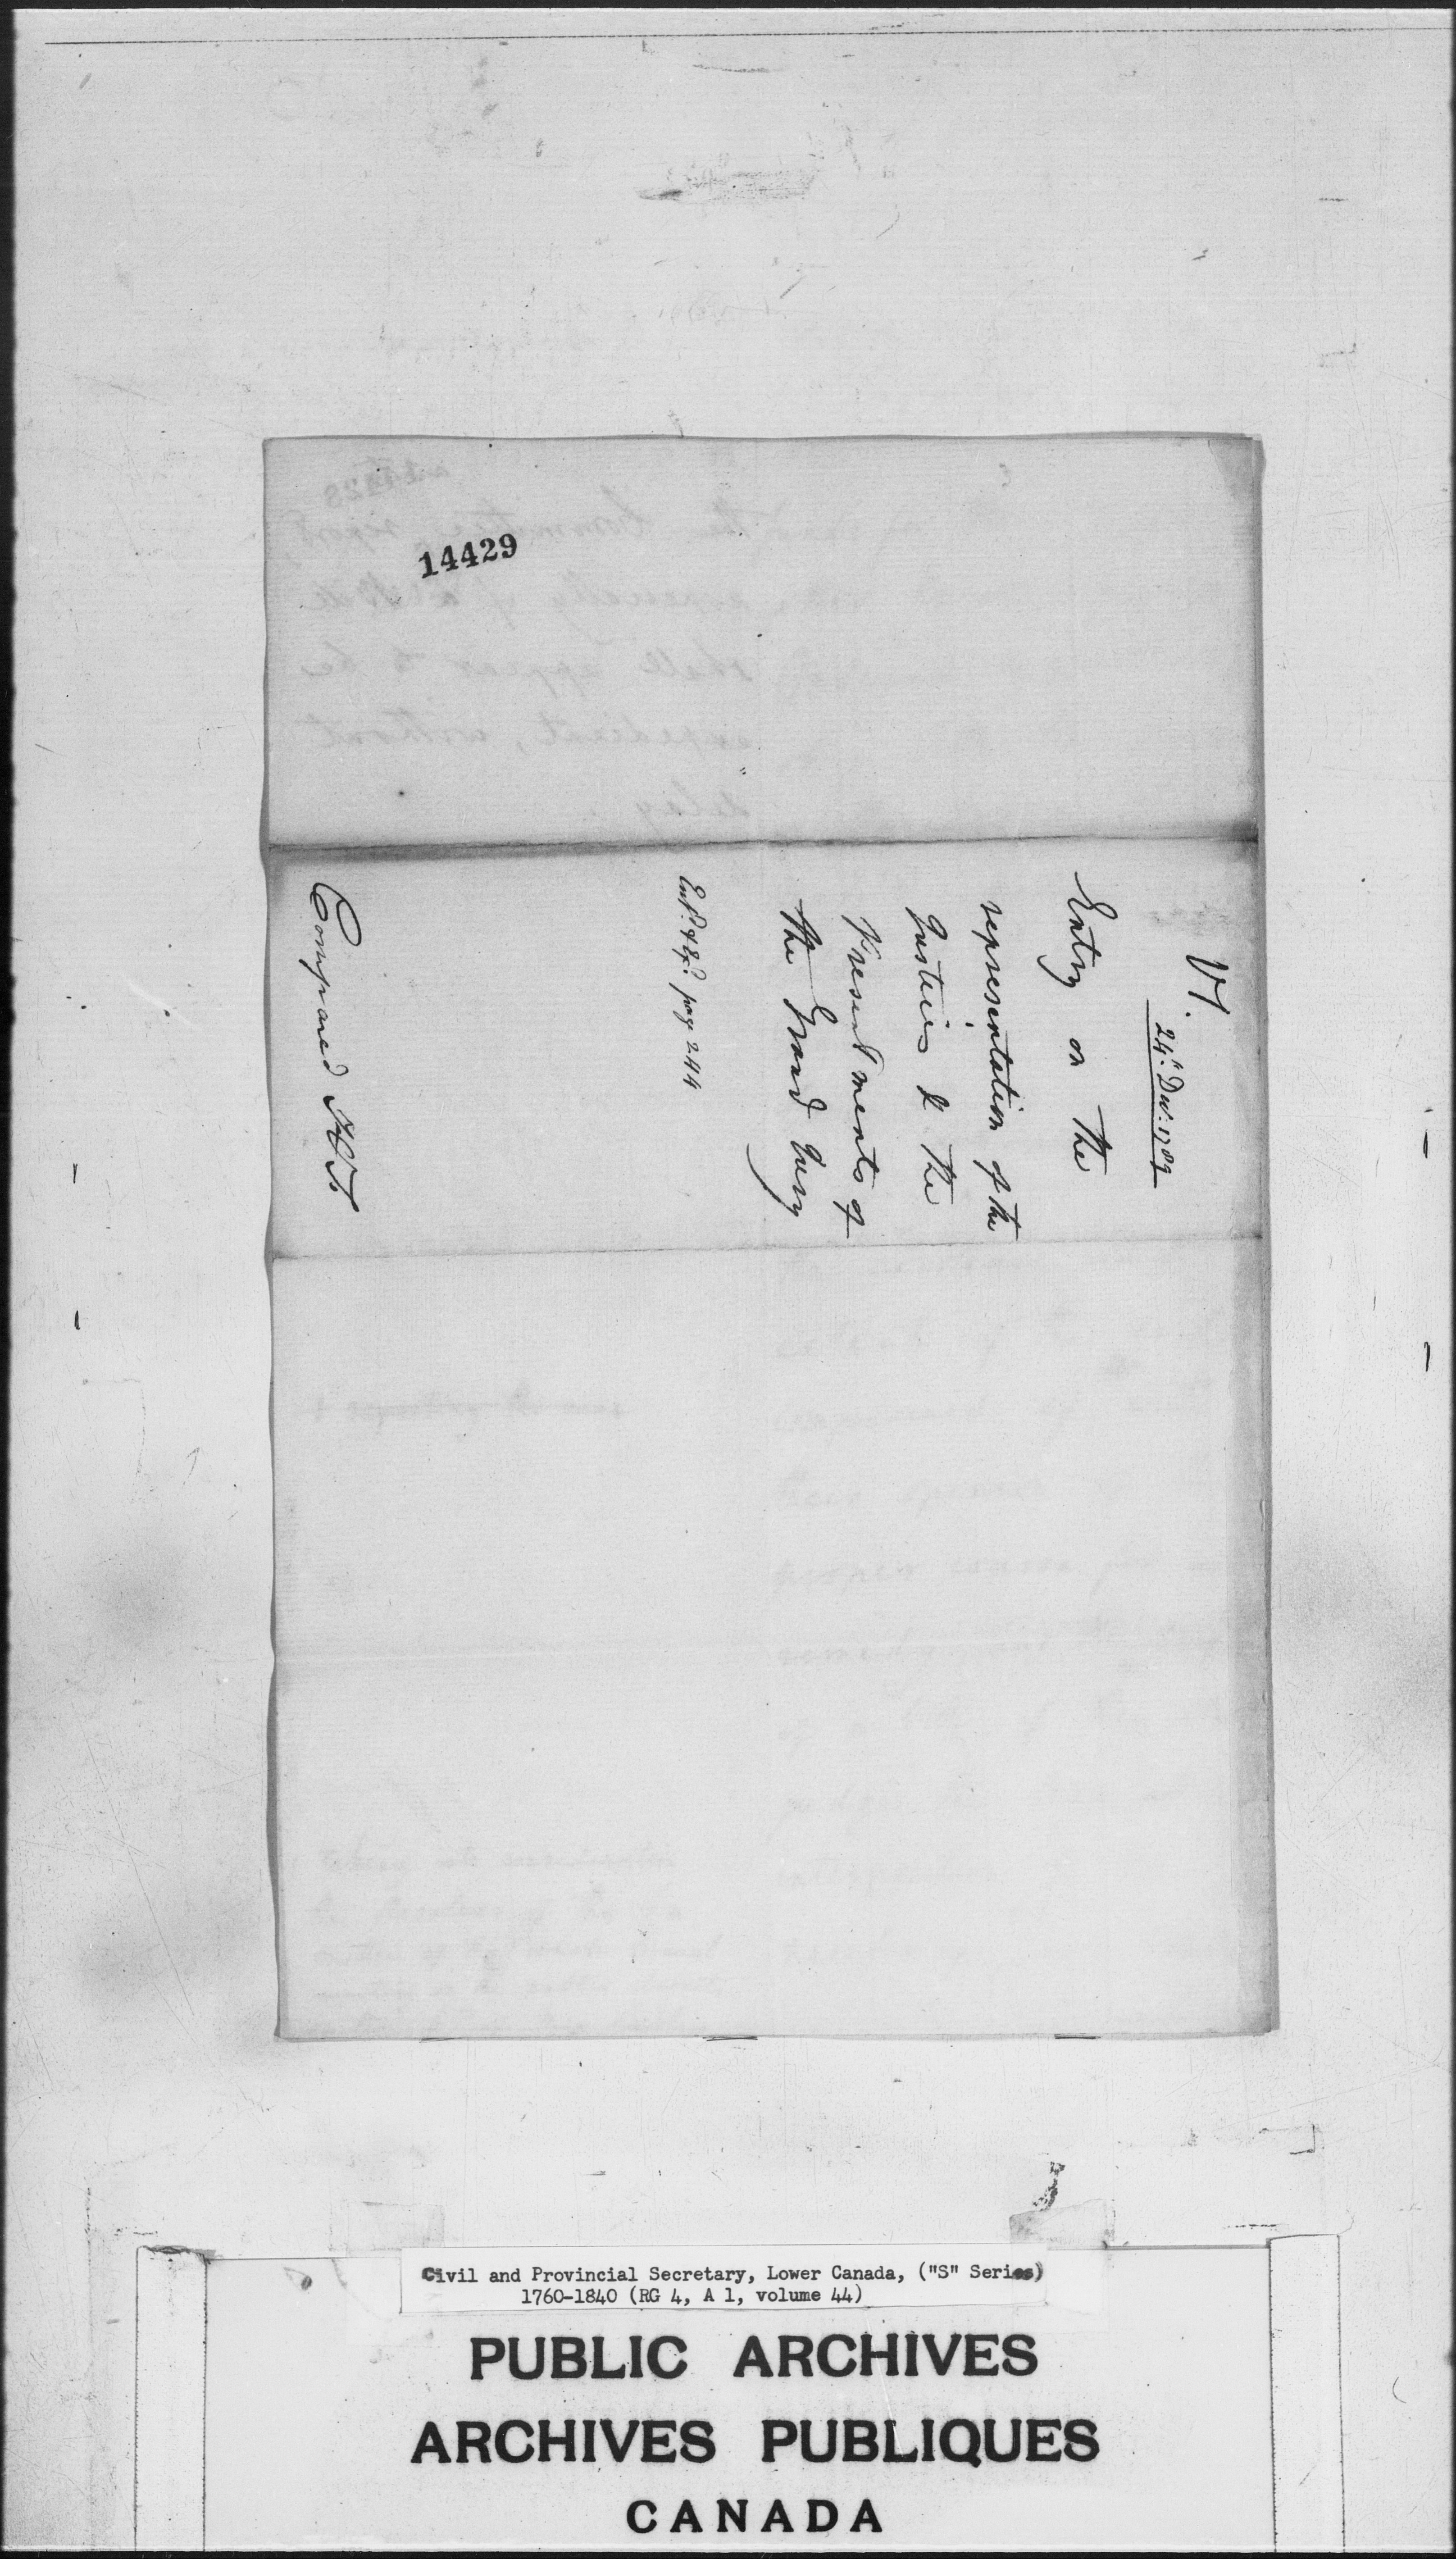 14429
V/.
24th. Decr. 1789
Entry on the
representation of the
Justices & the
Presentments of
the Grand Jury
Entd. & Exd. page 244
Compared
Civil and Provincial Secretary, Lower Canada, ("S" Series)
1760-1840 (RG 4, A 1, volume 44)
PUBLIC ARCHIVES
ARCHIVES PUBLIQUES
CANADA